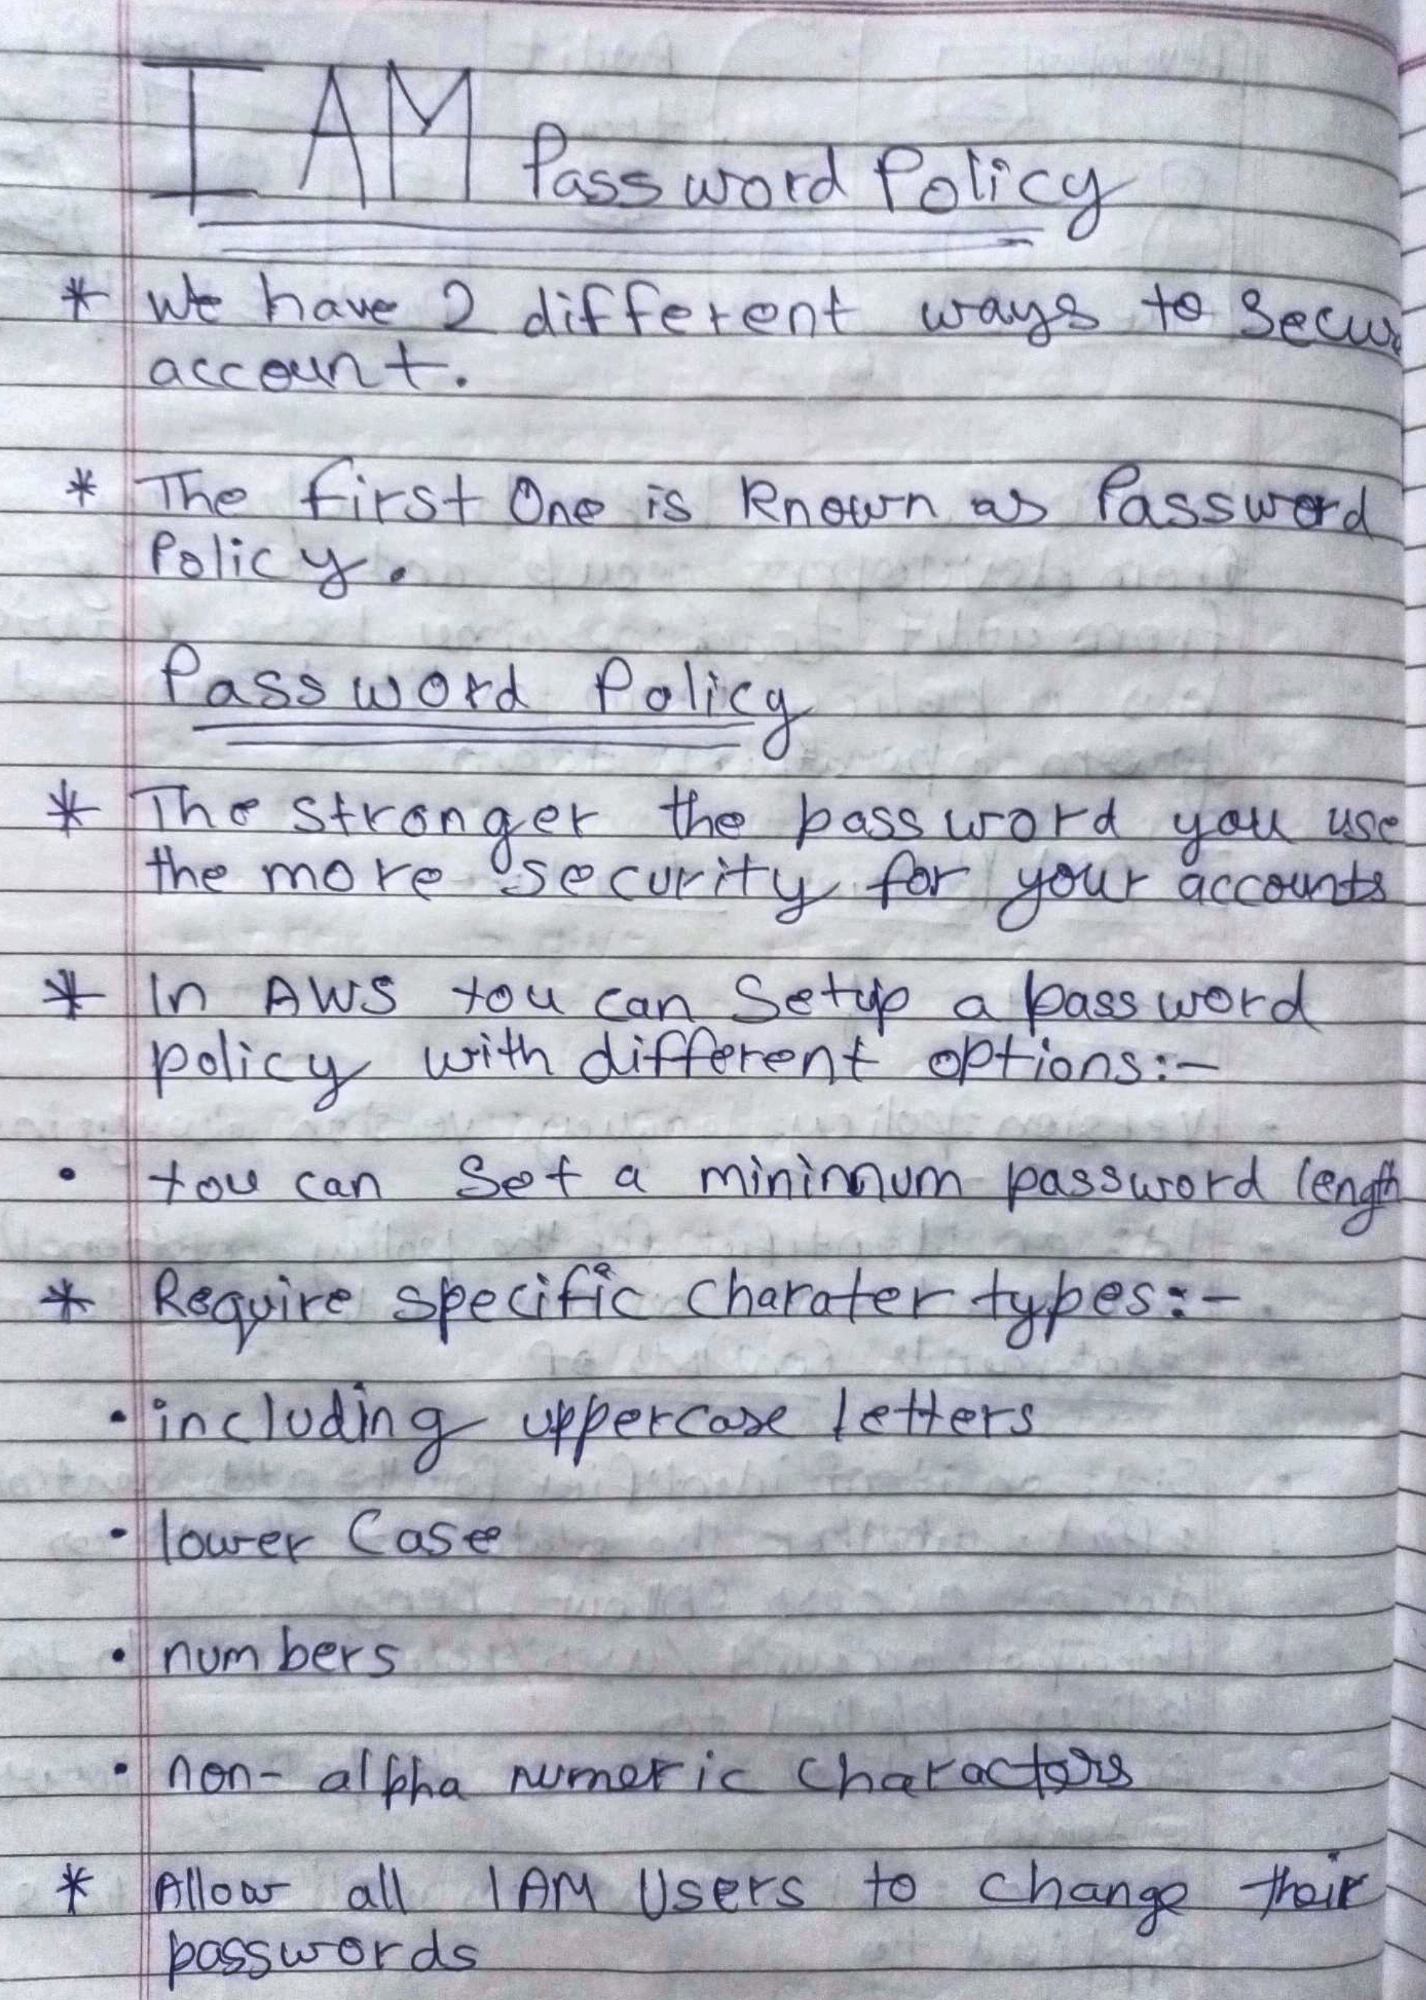 IAM Password Policy
* We have 2 different ways to Secur
account.
* The first One is Known as Password
Policy.
Password Policy
* The stronger the password you use
the more security for your accounts
* In AWS you can Setup a password
policy with different options:-
• you can Set a minimum password length
* Require specific Charater types:-
• including uppercase letters
• lower Case
• numbers
• non-alpha numeric Characters
* Allow all IAM Users to change their
passwords